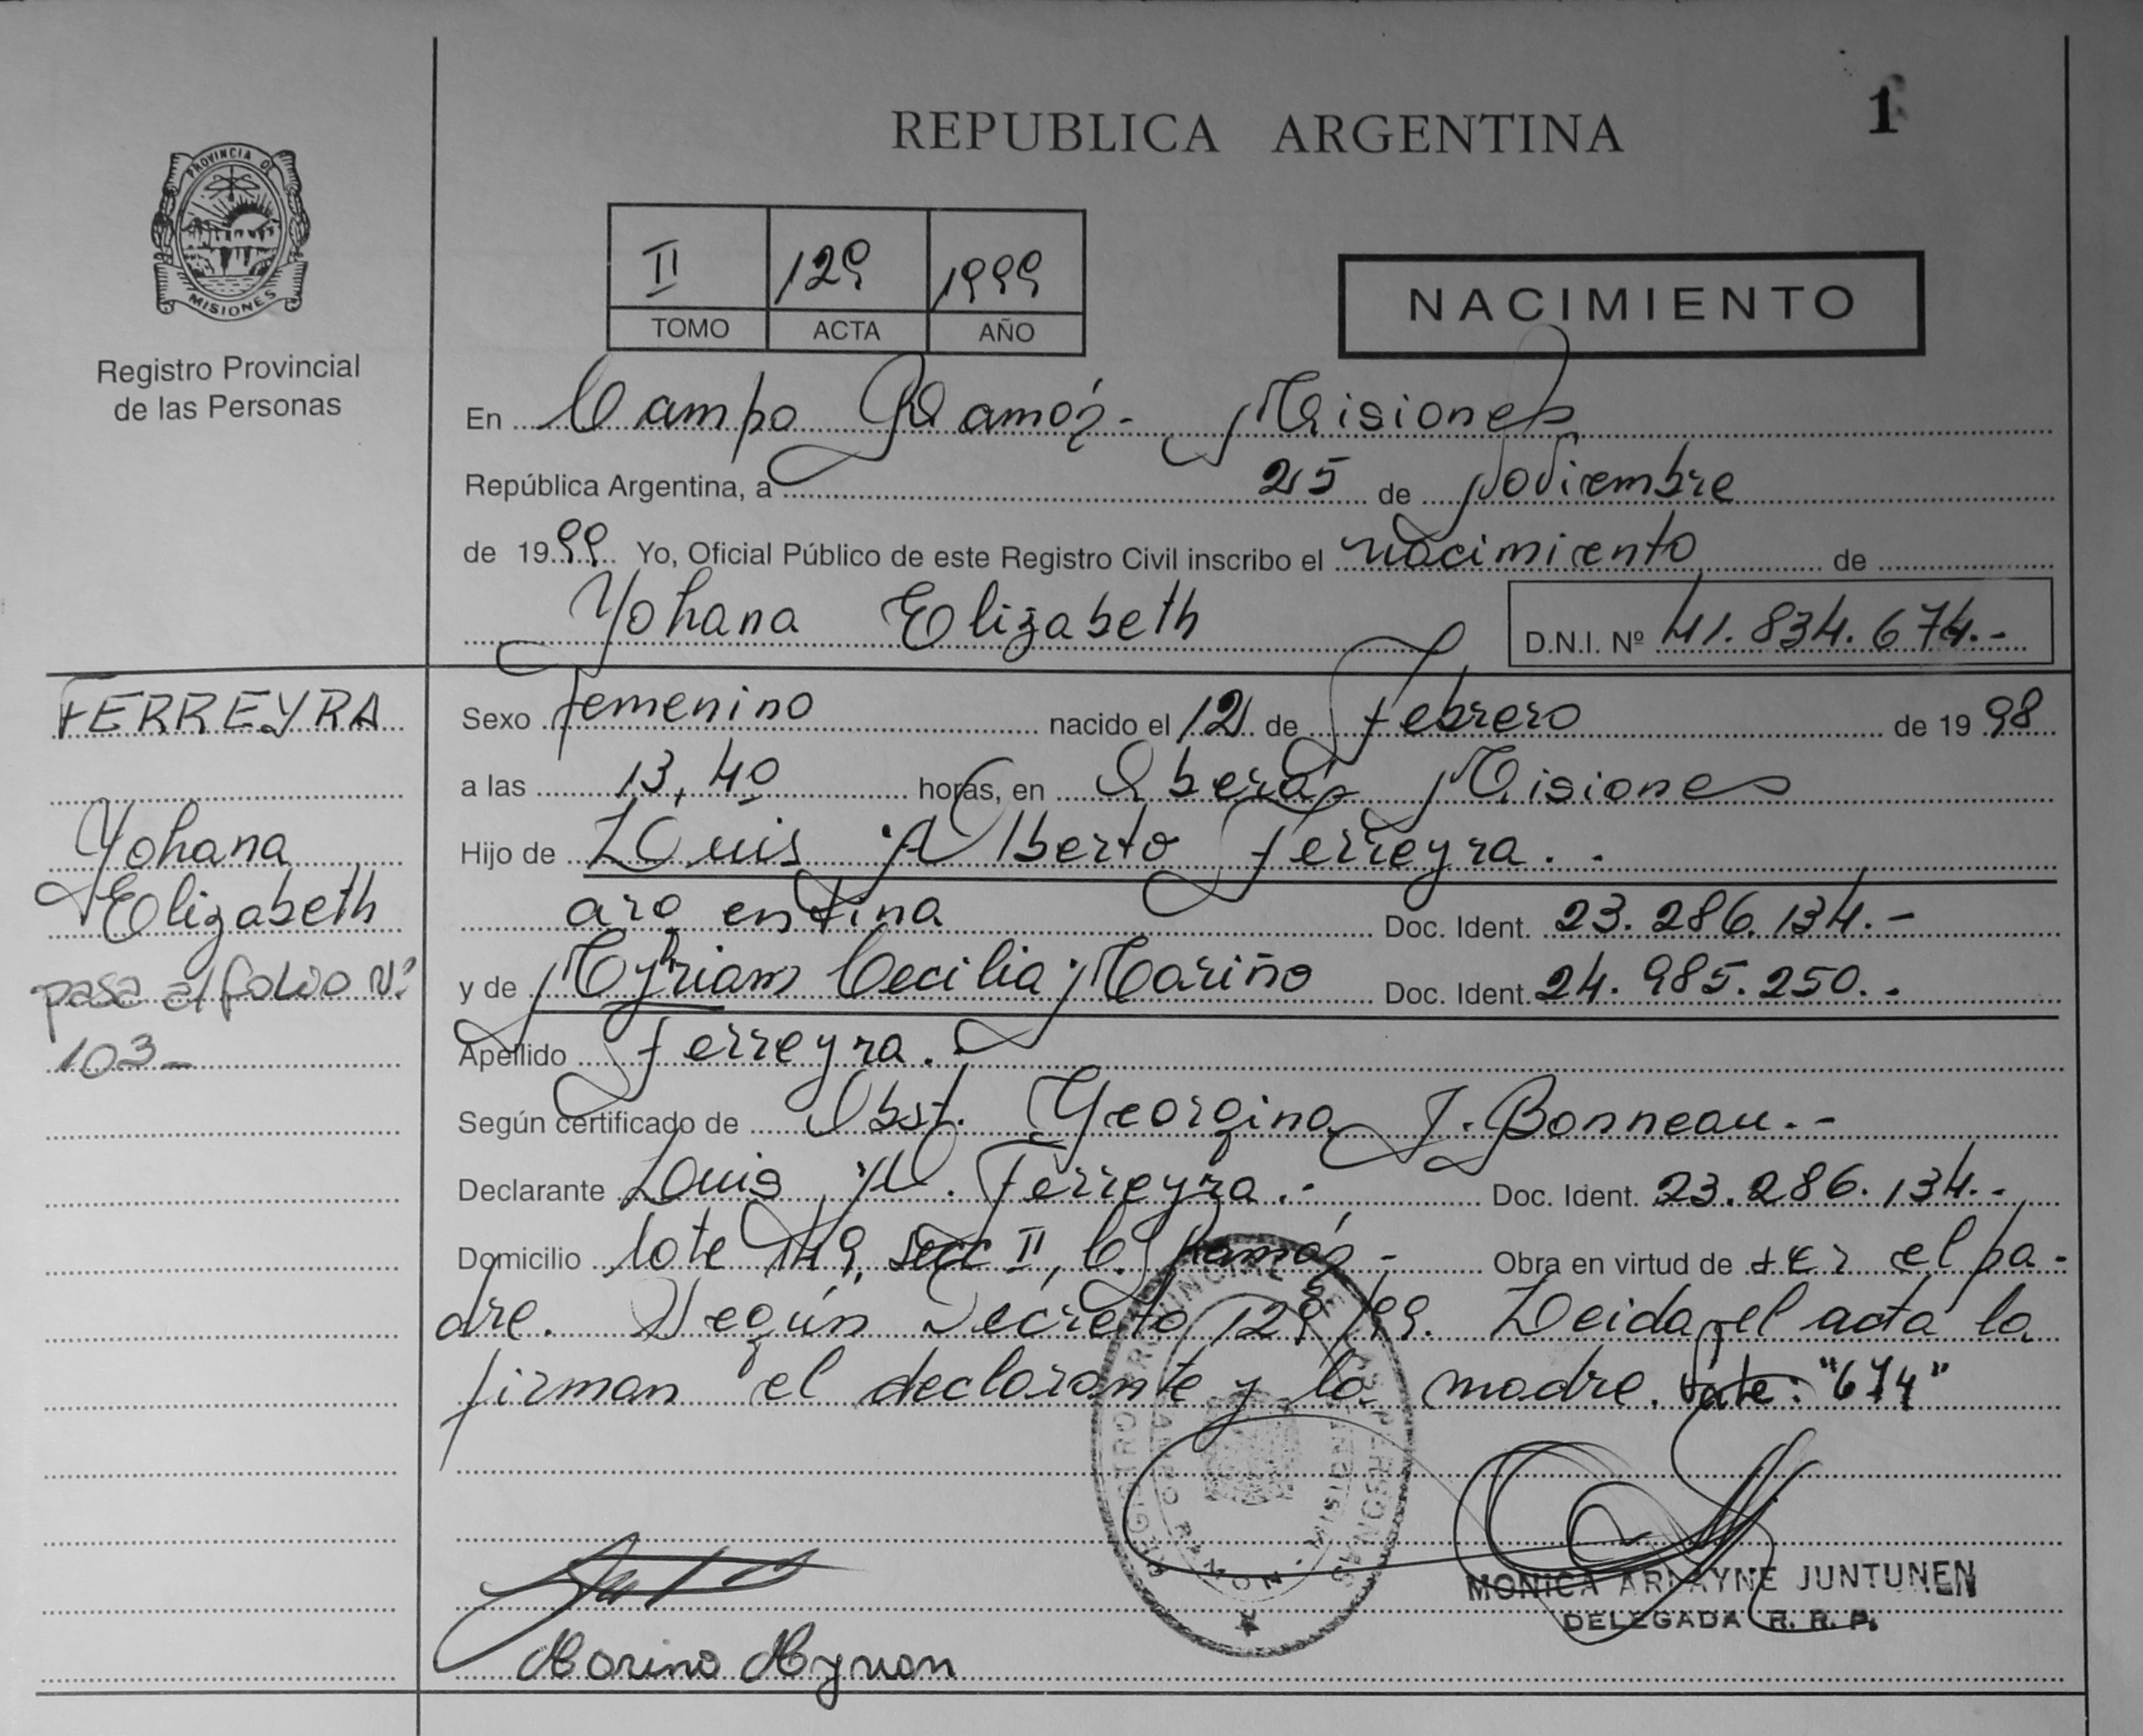 REPUBLICA ARGENTINA
1
PROVINCIA DE
MISIONES
Registro Provincial
de las Personas
II 129 1999
TOMO ACTA AÑO
NACIMIENTO
En Campo Ramón - Misiones
República Argentina, a 25 de Noviembre
de 1999 Yo, Oficial Público de este Registro Civil inscribo el nacimiento de
Yohana Elizabeth D.N.I. Nº 41.834.674.-
FERREYRA
Yohana
Elizabeth
pasa al folio Nº
103-
Sexo femenino nacido el 12 de Febrero de 1998
a las 13,40 horas, en Oberá, Misiones
Hijo de Luis Alberto Ferreyra.-
argentina Doc. Ident. 23.286.134.-
y de Myriam Cecilia Mariño Doc. Ident. 24.985.250.-
Apellido Ferreyra.-
Según certificado de Obst. Georgina J. Bonneau.-
Declarante Luis A. Ferreyra.- Doc. Ident. 23.286.134.-
Domicilio lote 149, secc II, C. Ramón - Obra en virtud de ser el pa-
dre. Según Decreto 129/99. Leida el acta la
firman el declarante y la madre. Vale: "674"
REGISTRO PROVINCIAL DE LAS PERSONAS
CAMPO RAMON - MISIONES
MONICA ARLAYNE JUNTUNEN
DELEGADA R. R. P.
Marino Myrian